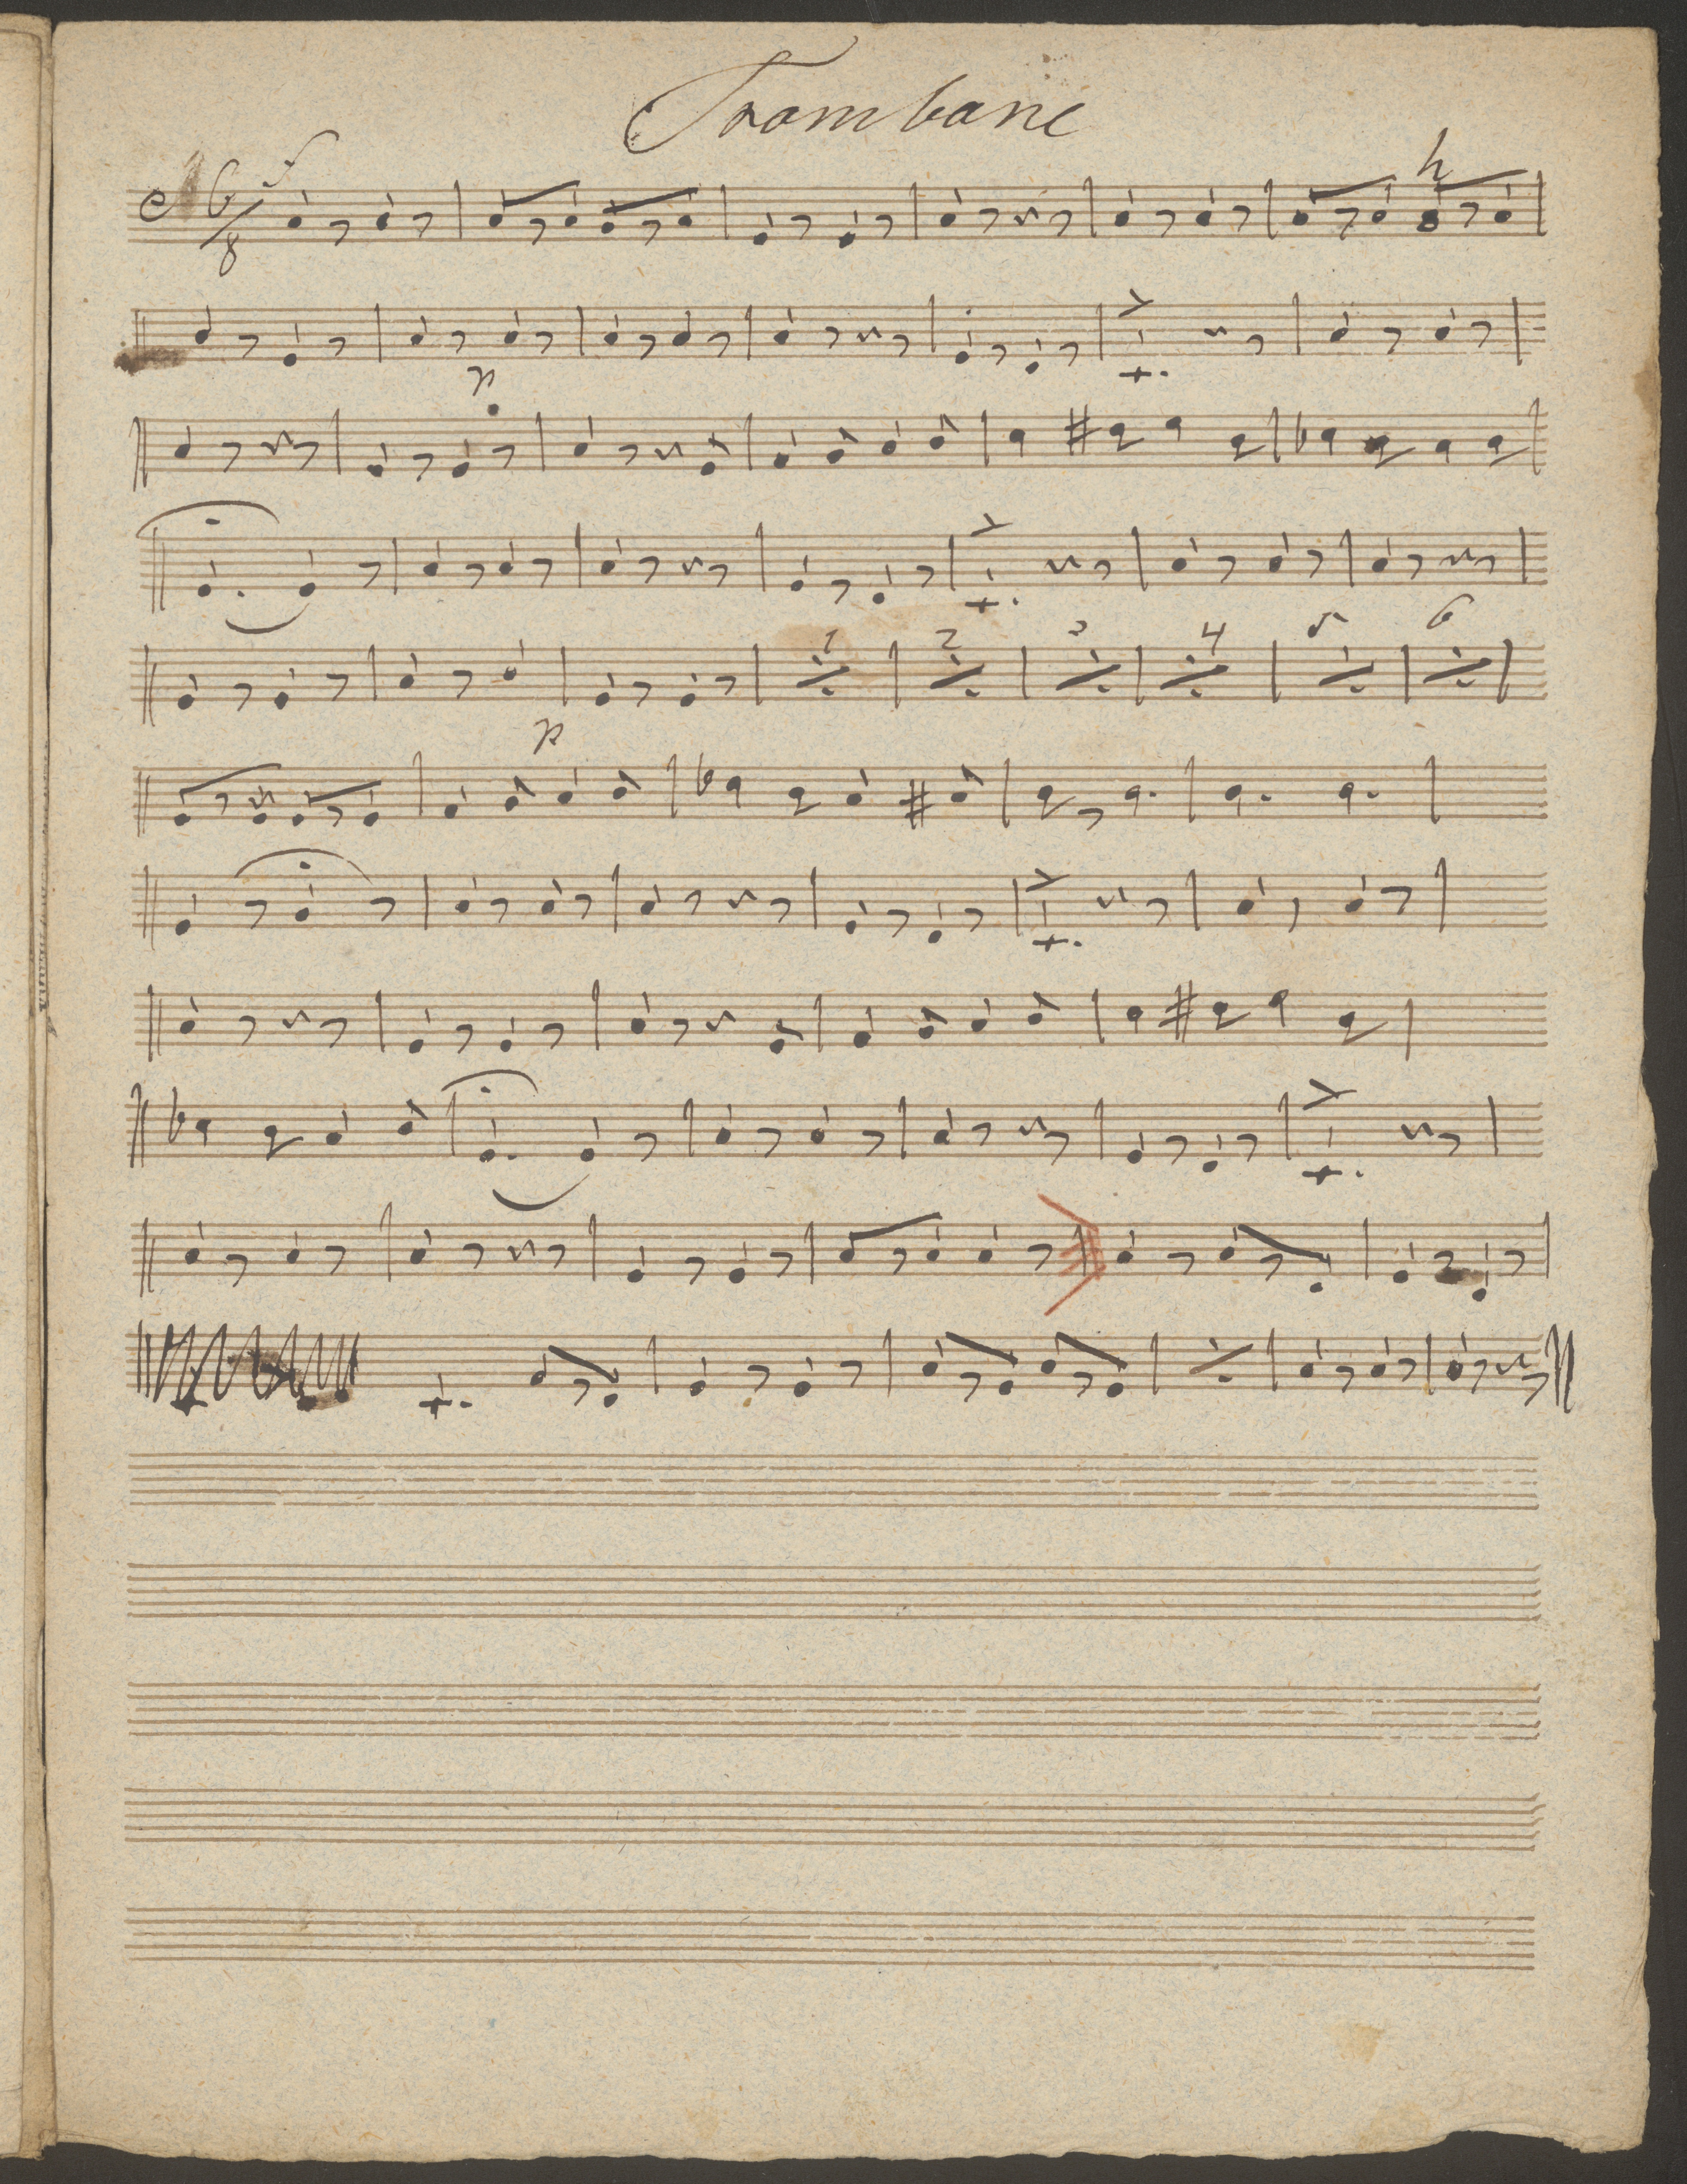 Trombone
6/8 f h
p
1 2 3 4 5 6
p